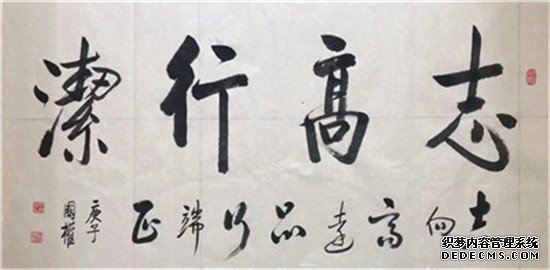 志高行潔
志向高遠品行端正
庚子
國權
织梦内容管理系统
DEDECMS.COM